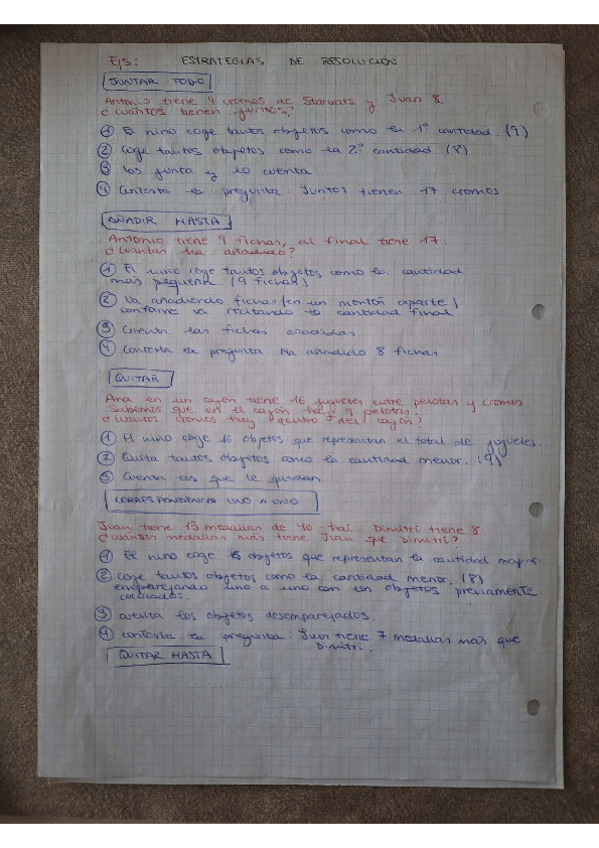 Ejs: ESTRATEGIAS DE RESOLUCIÓN
JUNTAR TODO
Antonio tiene 9 cromos de Starwars y Juan 8.
¿Cuántos tienen juntos?
① El niño coge tantos objetos como la 1º cantidad. (9)
② Coge tantos objetos como la 2º cantidad (8)
③ Los junta y lo cuenta
④ Contesta la pregunta. Juntos tienen 17 cromos
AÑADIR HASTA
Antonio tiene 9 fichas, al final tiene 17.
¿Cuántas ha añadido?
① El niño coge tantos objetos como la cantidad
más pequeña (9 fichas)
② Va añadiendo fichas (en un montón aparte)
conforme va recitando la cantidad final
③ Cuenta las fichas añadidas
④ Contesta la pregunta. Ha añadido 8 fichas
QUITAR
Ana en un cajón tiene 16 juguetes entre pelotas y cromos.
Sabemos que en el cajón hay 9 pelotas.
¿Cuántos cromos hay dentro del cajón?
① El niño coge 16 objetos que representan el total de juguetes.
② Quita tantos objetos como la cantidad menor. (9)
③ Cuenta los que le quedan
CORRESPONDENCIA UNO A UNO
Juan tiene 15 medallas de Yo-kai. Dimitri tiene 8
¿Cuántas medallas más tiene Juan que Dimitri?
① El niño coge 15 objetos que representan la cantidad mayor.
② Coge tantos objetos como la cantidad menor. (8)
emparejando uno a uno con los objetos previamente
colocados.
③ Cuenta los objetos desemparejados.
④ Contesta la pregunta: Juan tiene 7 medallas más que
Dimitri.
QUITAR HASTA